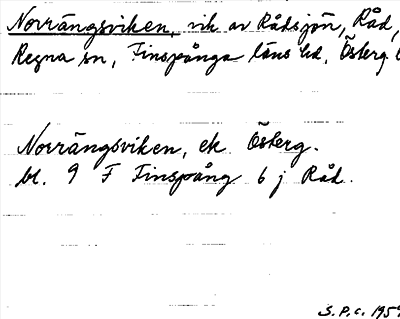 Norrängsviken, vik av Rådsjön, Råd,
Regna sn, Finspånga läns hd, Österg.
Norrängsviken, ek Österg.
bl. 9 F Finspång 6 j Råd.
S.P.C. 195